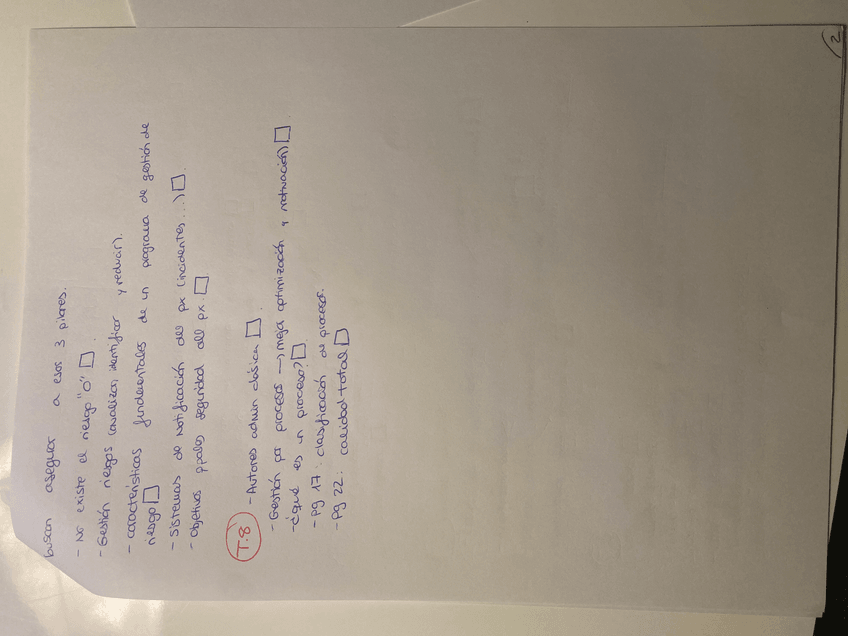 buscan asegurar a esos 3 pilares.
- No existe el riesgo "0" □.
- Gestión riesgos (analizar, identificar y reducir).
- características fundamentales de un programa de gestión de
riesgo □
- Sistemas de Notificación del px (incidentes...) □.
- Objetivos ppales seguridad del px. □
T.8
- Autores admin clásica □.
- Gestión por procesos → mejora optimización y motivación) □.
- ¿qué es un proceso? □
- Pg 17: clasificación de procesos.
- Pg 22: calidad total □
2